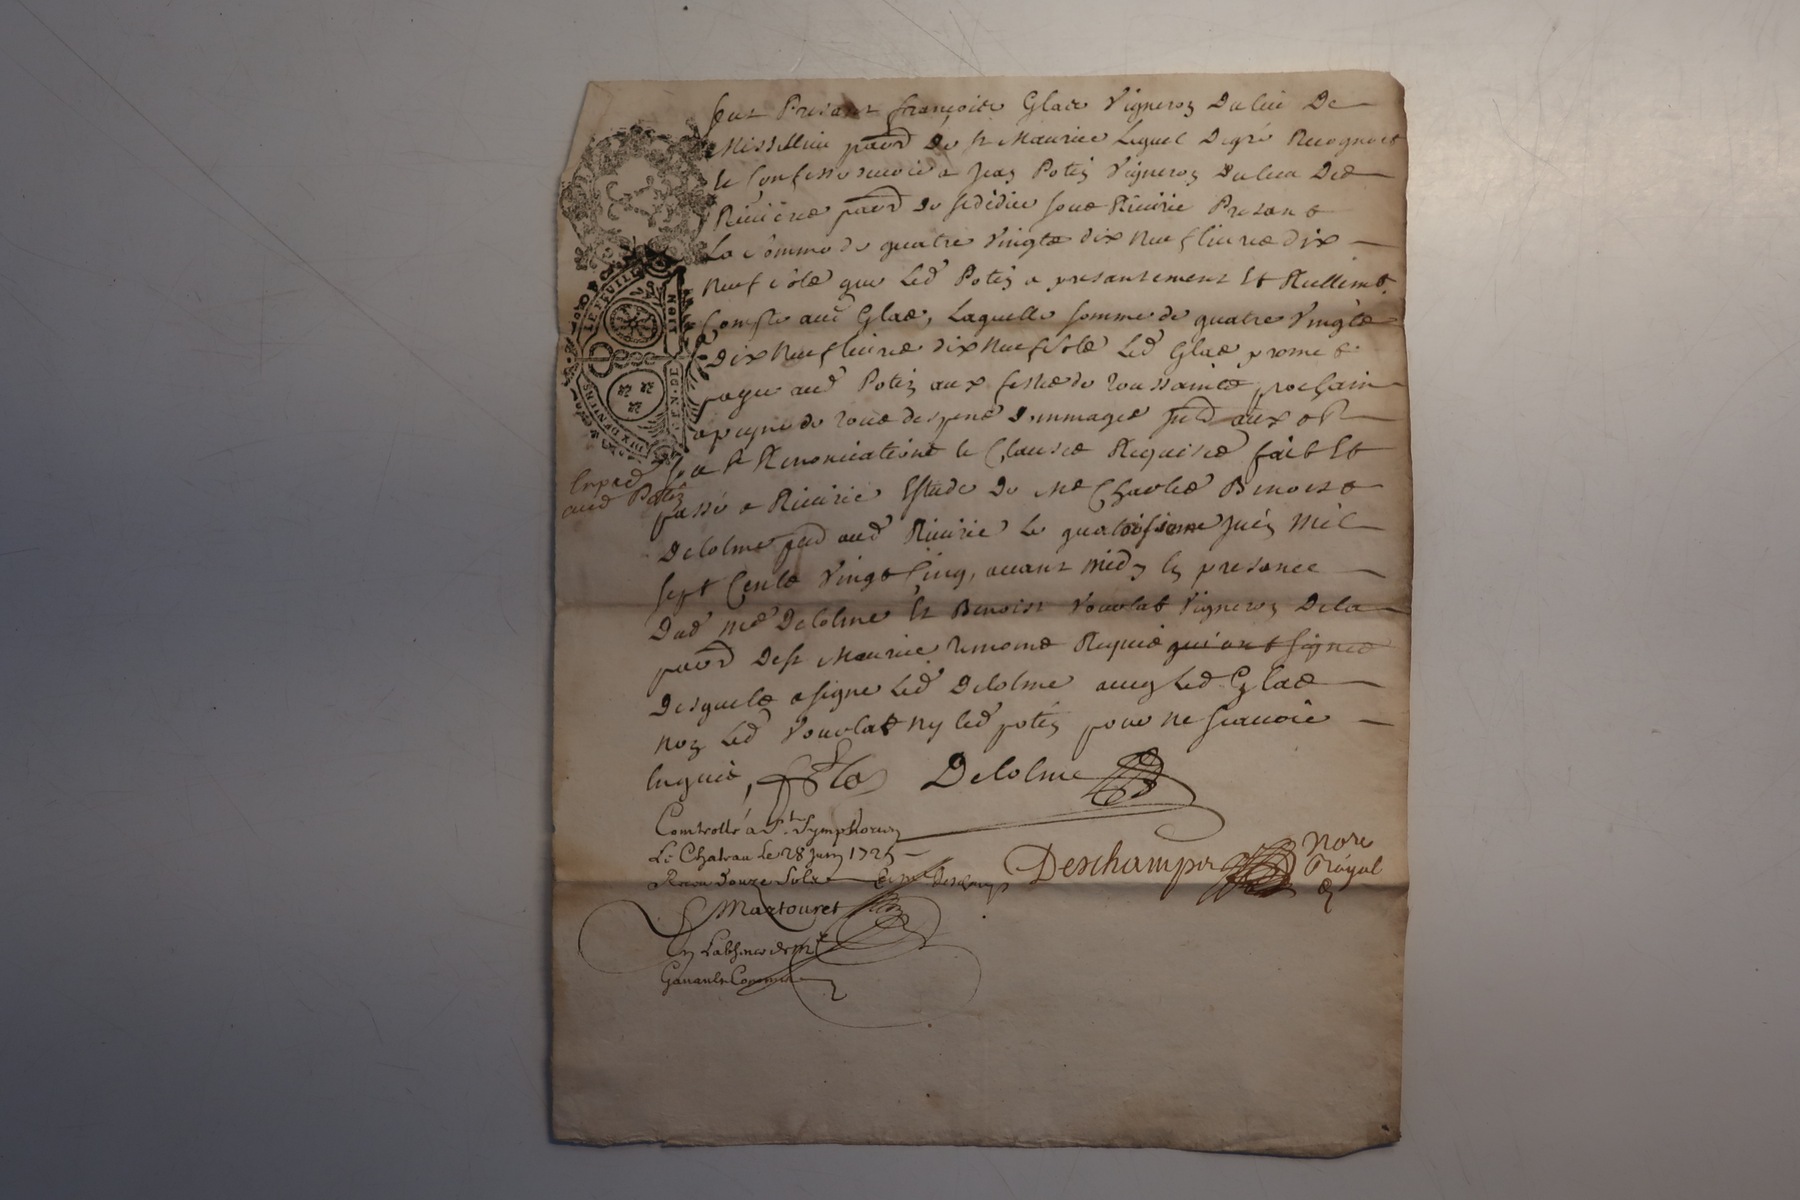 fut Presant françois Glas Vigneron du lieu De
Missillieu parr d De st Maurice Lequel De gré Recognoit
et Confesse devoir a Jean Potin Vigneron du lieu Des
Rivieres parr d De st didier sous Riverie Presant
La somme de quatre Vingts dix neuf livres dix
neuf sols que Led Potin a presantement
Compte aud Glas, Laquelle somme de quatre Vingts
Dix neuf livres dix neuf sols Led Glas promet
payer aud Potin aux festes de Toussaints prochain
a peyne de tous despens dommages
Renonciations et Clauses Requises fait Et
en pd
aud Potin
passé a Riverie Estude de Me Charles Benoist
Delolme aud Riverie Le quatorsieme Juin Mil
sept Cents Vingt Cinq, avant midy En presance
Dud me Delolme Et Benoist Vouolat Vigneron De la
parr d De st Maurice temoins Requis qui ont signes
Desquels a signe Led Delolme avecq Led Glas
non Led Vouolat ny led potin pour ne scavoir
Enquis, f Glas Delolme
Controllé a St. Symphorien
Le Chateau le 28 Juin 1725
Receu Douze Sols Deschamps
Deschamps Nore
Royal
Martouret
En Labsence de Mr
Ganault Commis
LE FEUIL
DIX DENIERS
GEN. DE